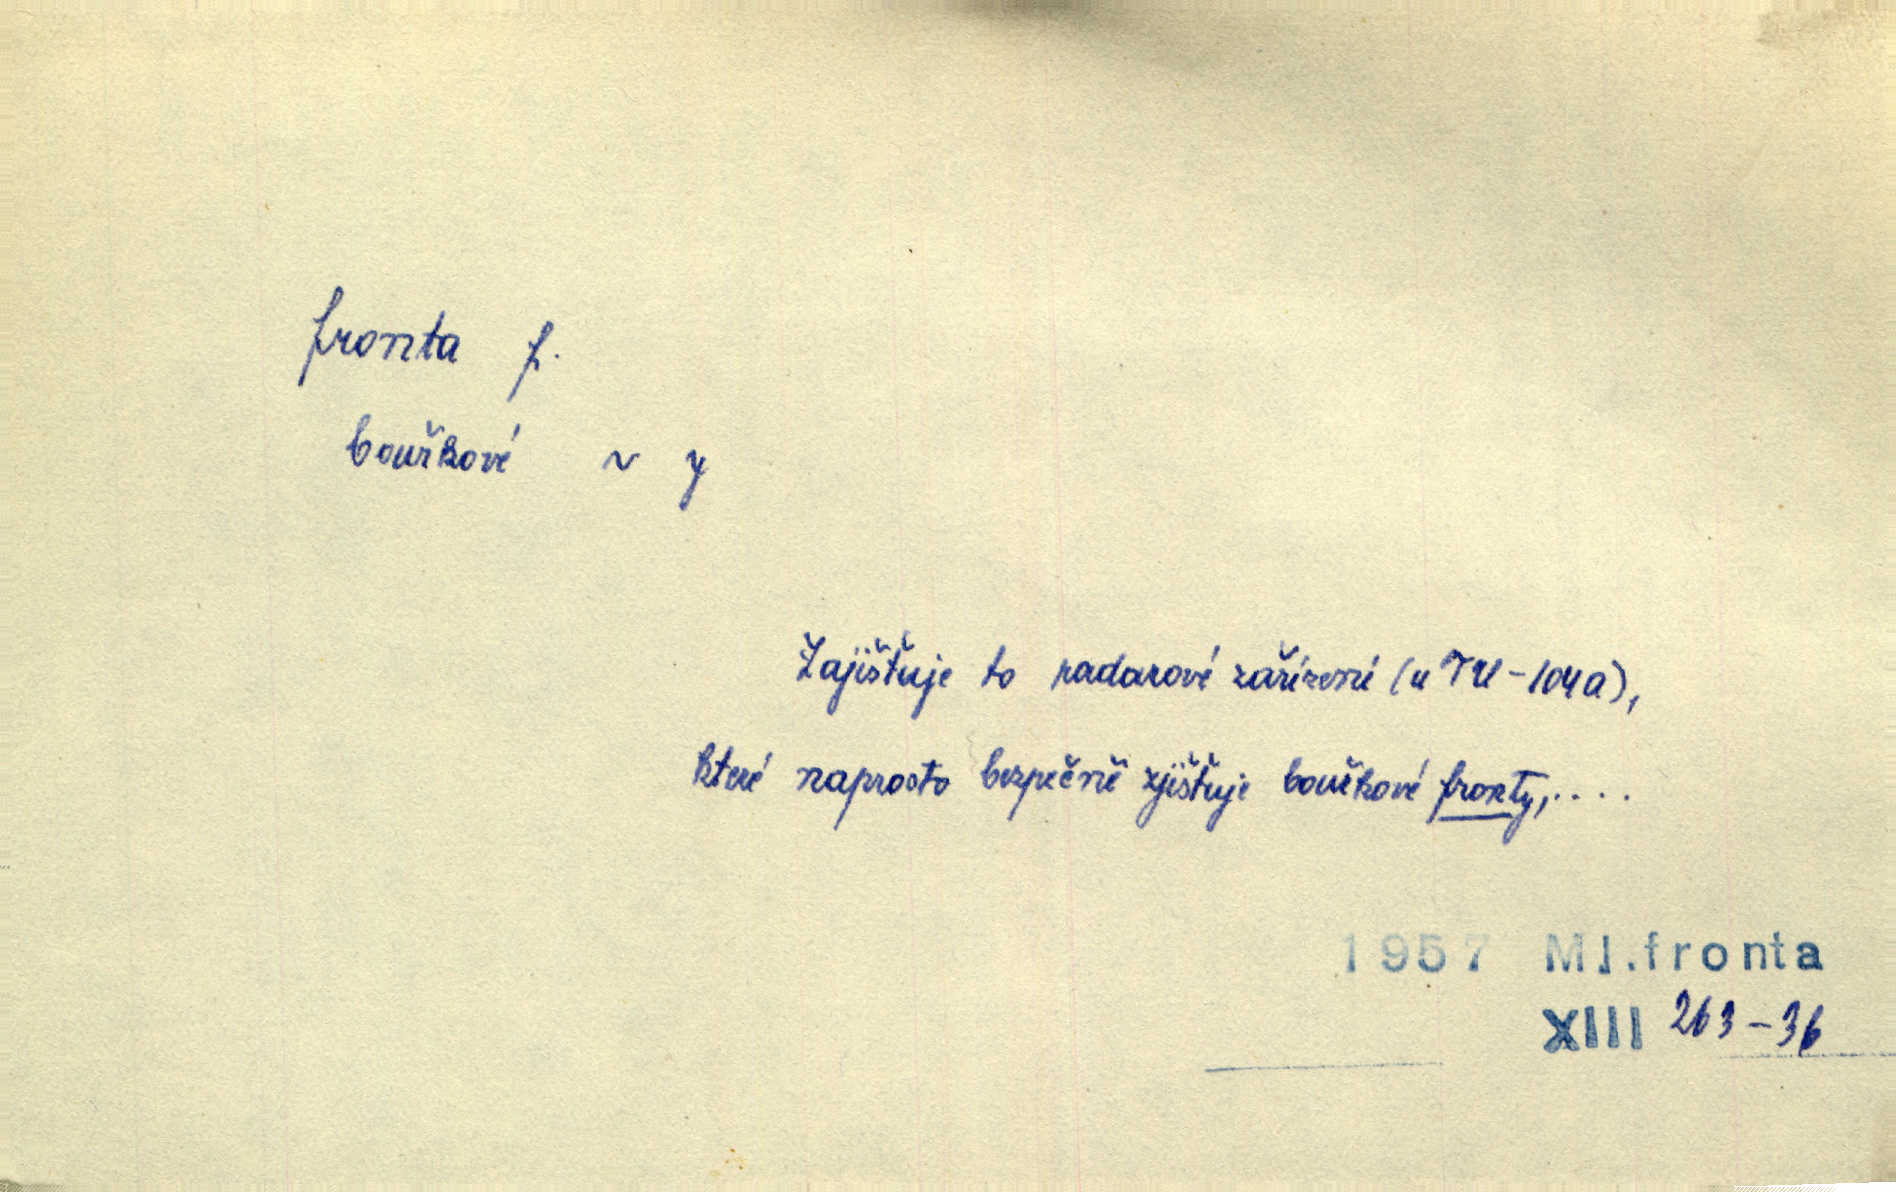 fronta f.
bouřkové ~ y
Zajišťuje to radarové zařízení (u TU-104A),
které naprosto bezpečně zjišťuje bouřkové fronty,....
1957 Ml.fronta
XIII 263-36